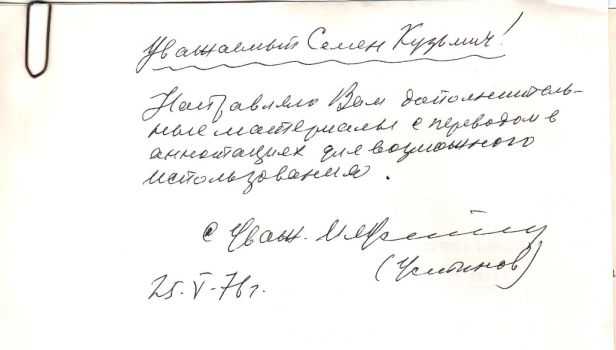 Уважаемый Семен Кузьмич!
Направляю Вам дополнитель-
ные материалы с переводом в
аннотациях для возможного
использования.
С уваж.
(Устинов)
25.V-76г.